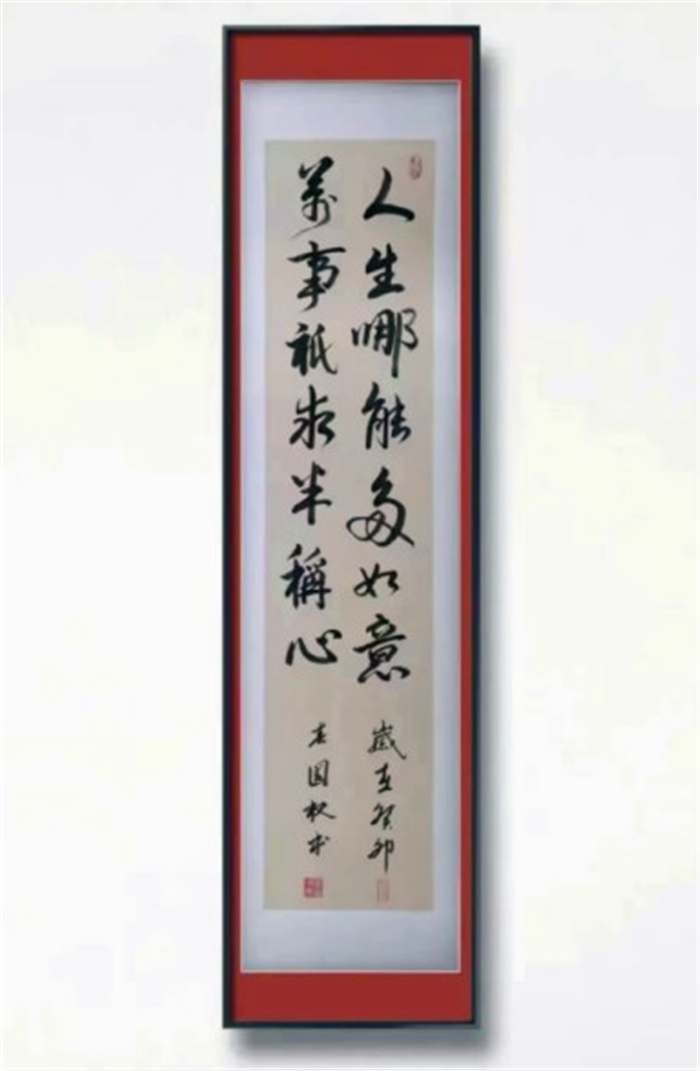 人生哪能多如意
萬事祇求半稱心
歲在癸卯
國权书